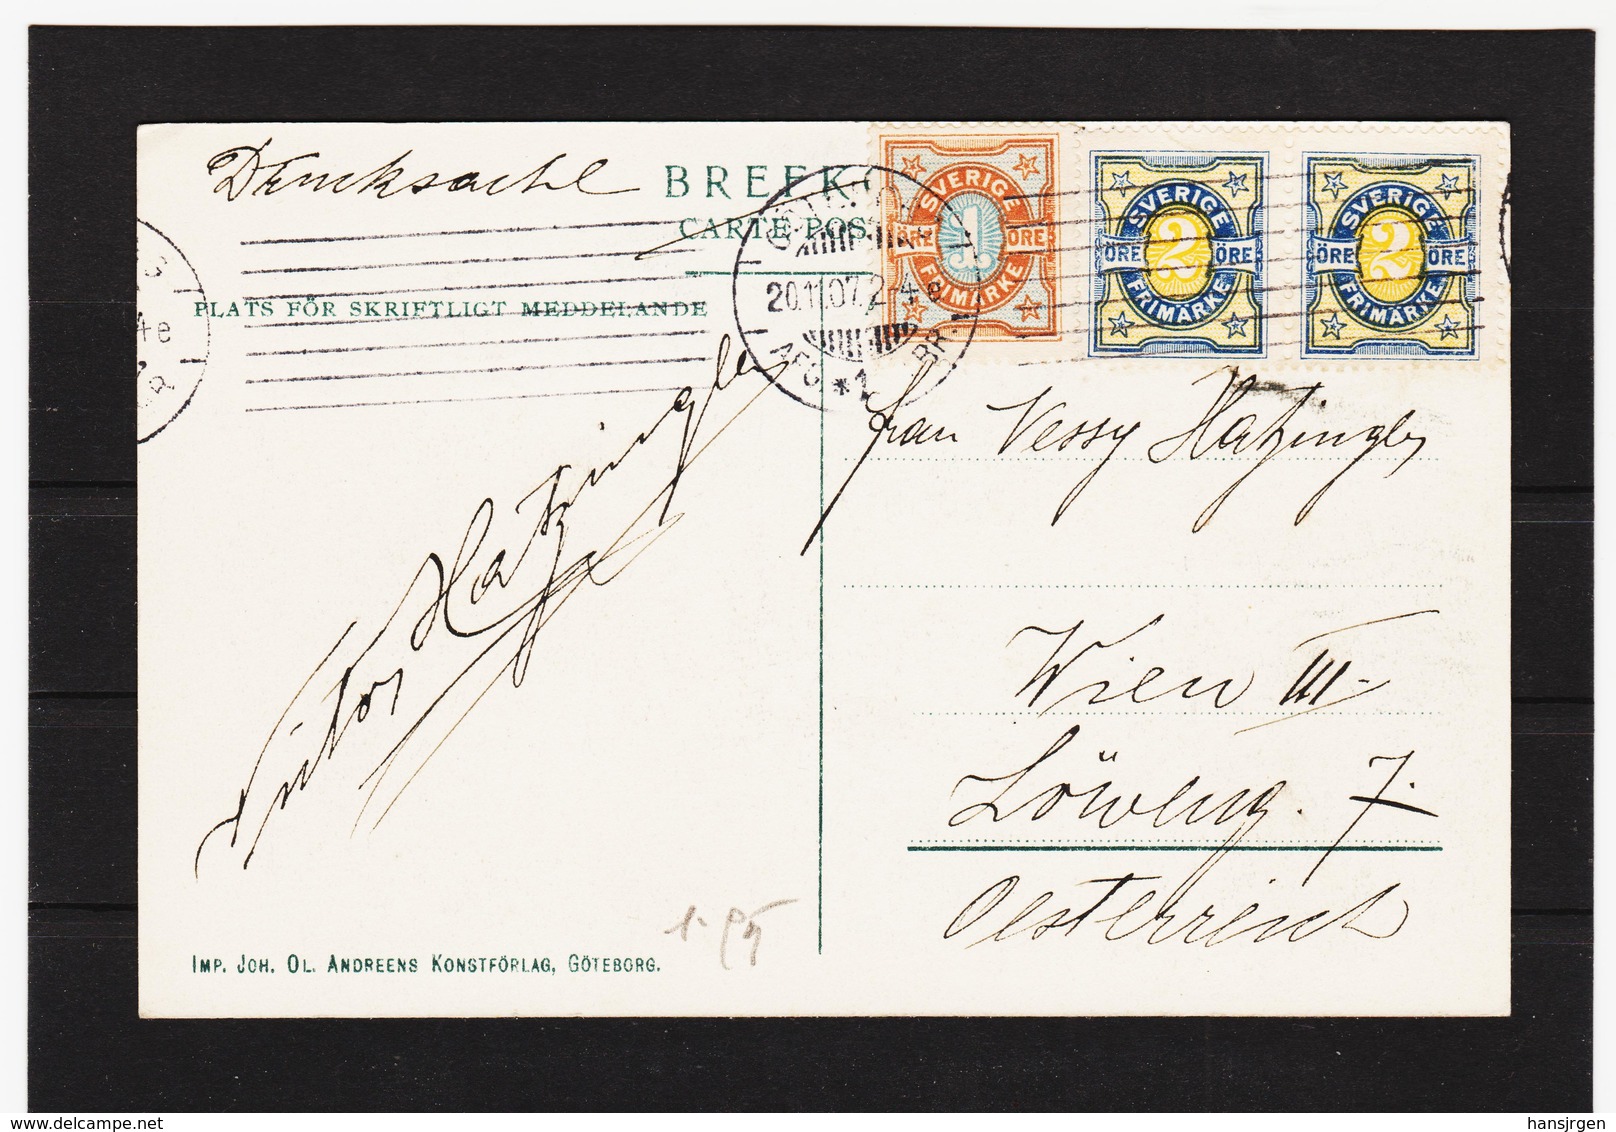 Drucksache
BREFK
CARTE POS
PLATS FÖR SKRIFTLIGT MEDDELANDE
SVERIGE
1
ÖRE ÖRE
FRIMÄRKE
SVERIGE
2
ÖRE ÖRE
FRIMÄRKE
SVERIGE
2
ÖRE ÖRE
FRIMÄRKE
20.11.07. 2-4 e
AFG. *1 BR.
4e
Viktor Hatzingler
Frau Vessy Hatzingler
Wien III.
Löweng. 7.
Oesterreich
IMP. JOH. OL. ANDREENS KONSTFÖRLAG, GÖTEBORG.
hansjrgen